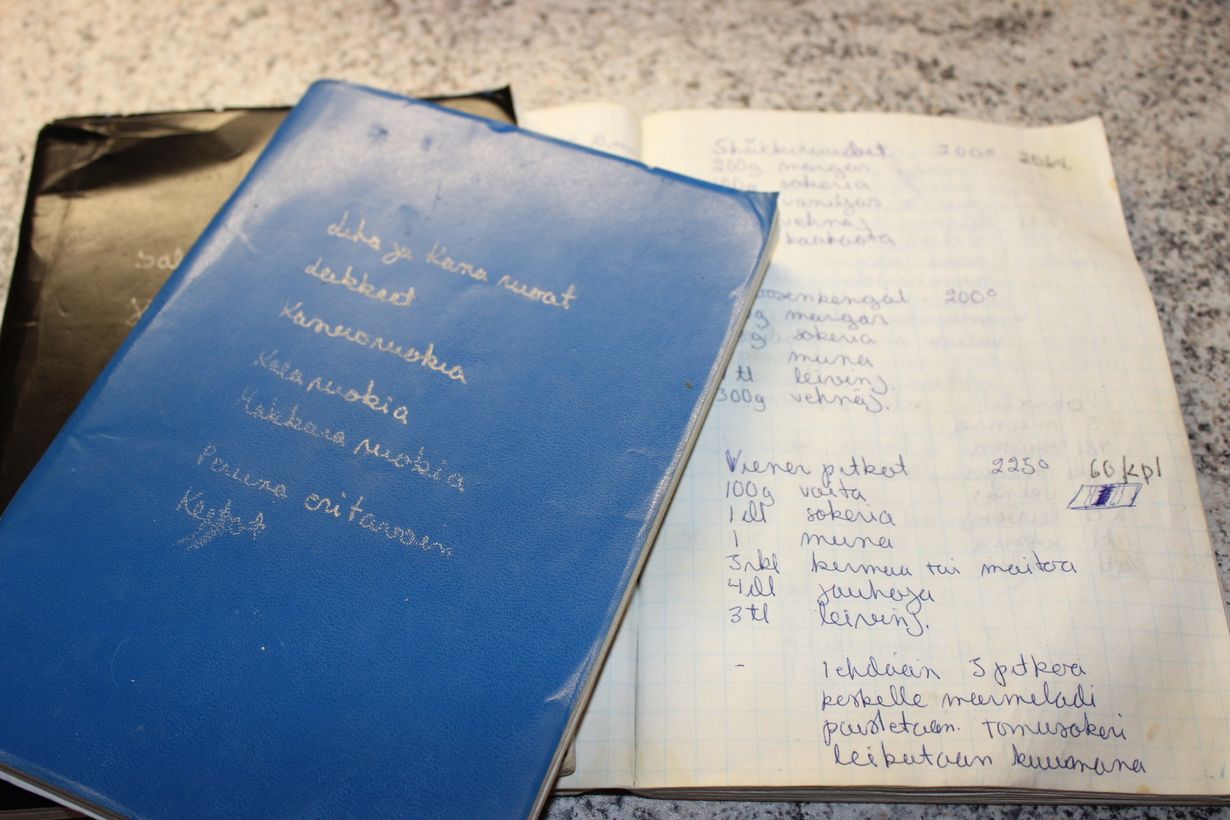 Liha ja Kana ruuat
Leikkeet
Kanaruokia
Kala ruokia
Makkara ruokia
Peruna eri tavoin
sal
200°
200g margar.
sokeria
vaniljas
vehnäj
kaurhauta
200°
g margar
g sokeria
muna
tl leivinj.
300g vehnäj.
Viener pitkot 225° 60 kpl
100g voita
1 dl sokeria
1 muna
3 rkl kermaa tai maitoa
4 dl jauhoja
3 tl leivinj.
- tehdään 3 pitkoa
keskelle marmeladi
paistetaan. tomusokeri
leikataan kuumana